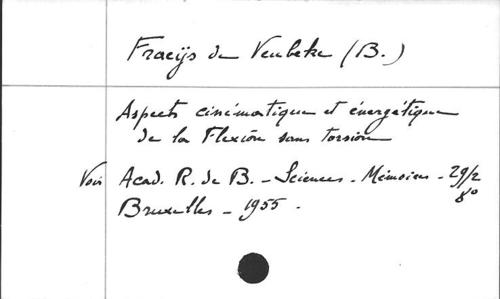 Fraeijs de Veubeke (B.)
Aspects cinématique et énergétique
de la Flexion sans torsion
Voir Acad. R. de B. - Sciences - Mémoires - 29/2
8°
Bruxelles - 1955 -